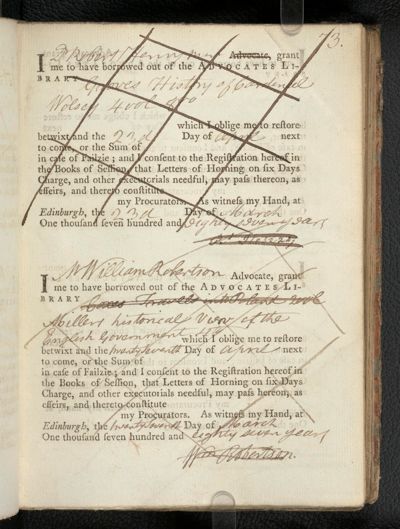 73.
I D Robert Advocate, grant
me to have borrowed out of the ADVOCATES LI-
BRARY Groves History of Cardinal
Wolsey 4 vol 8vo
which I oblige me to restore
betwixt and the 23d Day of April next
to come, or the Sum of
in case of Failzie; and I consent to the Registration hereof in
the Books of Session, that Letters of Horning on six Days
Charge, and other executorials needful, may pass thereon, as
effeirs, and thereto constitute
my Procurators. As witness my Hand, at
Edinburgh, the 23d Day of March
One thousand seven hundred and Eighty Seven years
I Mr William Robertson Advocate, grant
me to have borrowed out of the ADVOCATES LI-
BRARY Coxes Travels into Poland
Millers historical View of the
English Government
which I oblige me to restore
betwixt and the twenty seventh Day of April next
to come, or the Sum of
in case of Failzie; and I consent to the Registration hereof in
the Books of Session, that Letters of Horning on six Days
Charge, and other executorials needful, may pass hereon, as
effeirs, and thereto constitute
my Procurators. As witness my Hand, at
Edinburgh, the twenty seventh Day of March
One thousand seven hundred and eighty seven years
Wm Robertson.